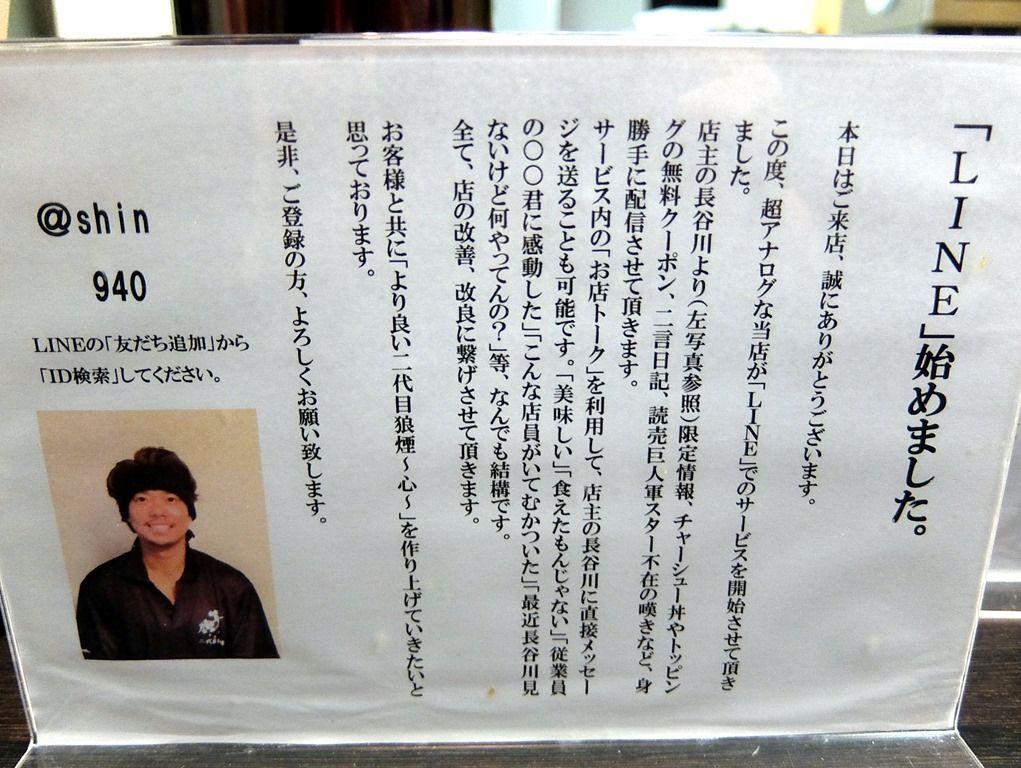 「LINE」始めました。
本日はご来店、誠にありがとうございます。
この度、超アナログな当店が「LINE」でのサービスを開始させて頂き
ました。
店主の長谷川より(左写真参照)限定情報、チャーシュー丼やトッピン
グの無料クーポン、二言日記、読売巨人軍スター不在の嘆きなど、身
勝手に配信させて頂きます。
サービス内の「お店トーク」を利用して、店主の長谷川に直接メッセー
ジを送ることも可能です。「美味しい」「食えたもんじゃない」「従業員
の〇〇〇君に感動した」「こんな店員がいてむかついた」「最近長谷川見
ないけど何やってんの?」等、なんでも結構です。
全て、店の改善、改良に繋げさせて頂きます。
お客様と共に「より良い二代目狼煙~心~」を作り上げていきたいと
思っております。
是非、ご登録の方、よろしくお願い致します。
@shin
940
LINEの「友だち追加」から
「ID検索」してください。